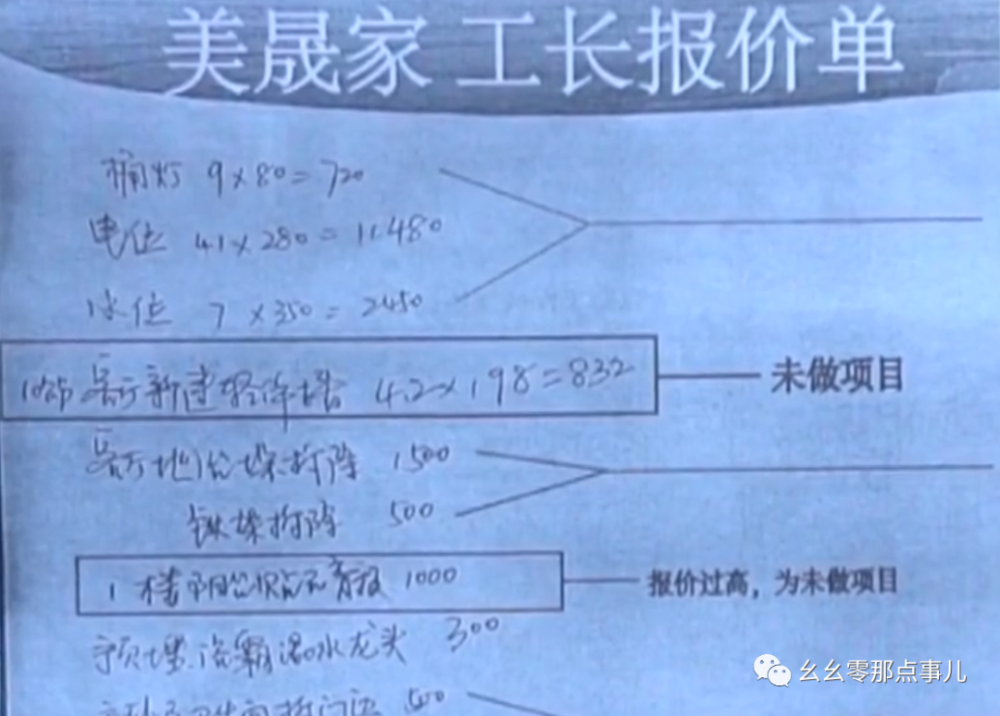 美晟家 工长报价单
桶灯 9×80=720
电位 41×280=11480
水位 7×350=2450
客厅新建轻体墙 4.2×198=832
未做项目
客厅地台垛拆除 1500
拆除 500
1楼阳台 1000
报价过高，为未做项目
预埋浴霸混水龙头 300
拆门 500
幺幺零那点事儿